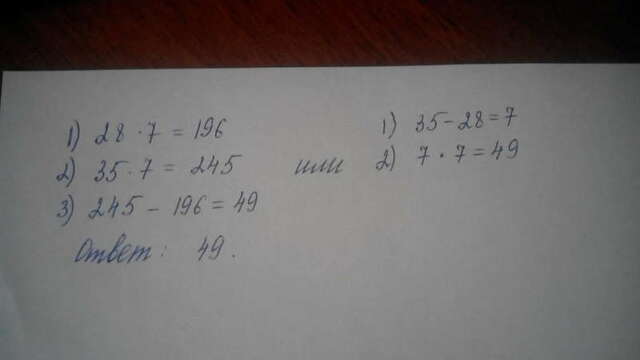 1) 28 · 7 = 196
2) 35 · 7 = 245
3) 245 - 196 = 49
Ответ: 49.
или
1) 35 - 28 = 7
2) 7 · 7 = 49